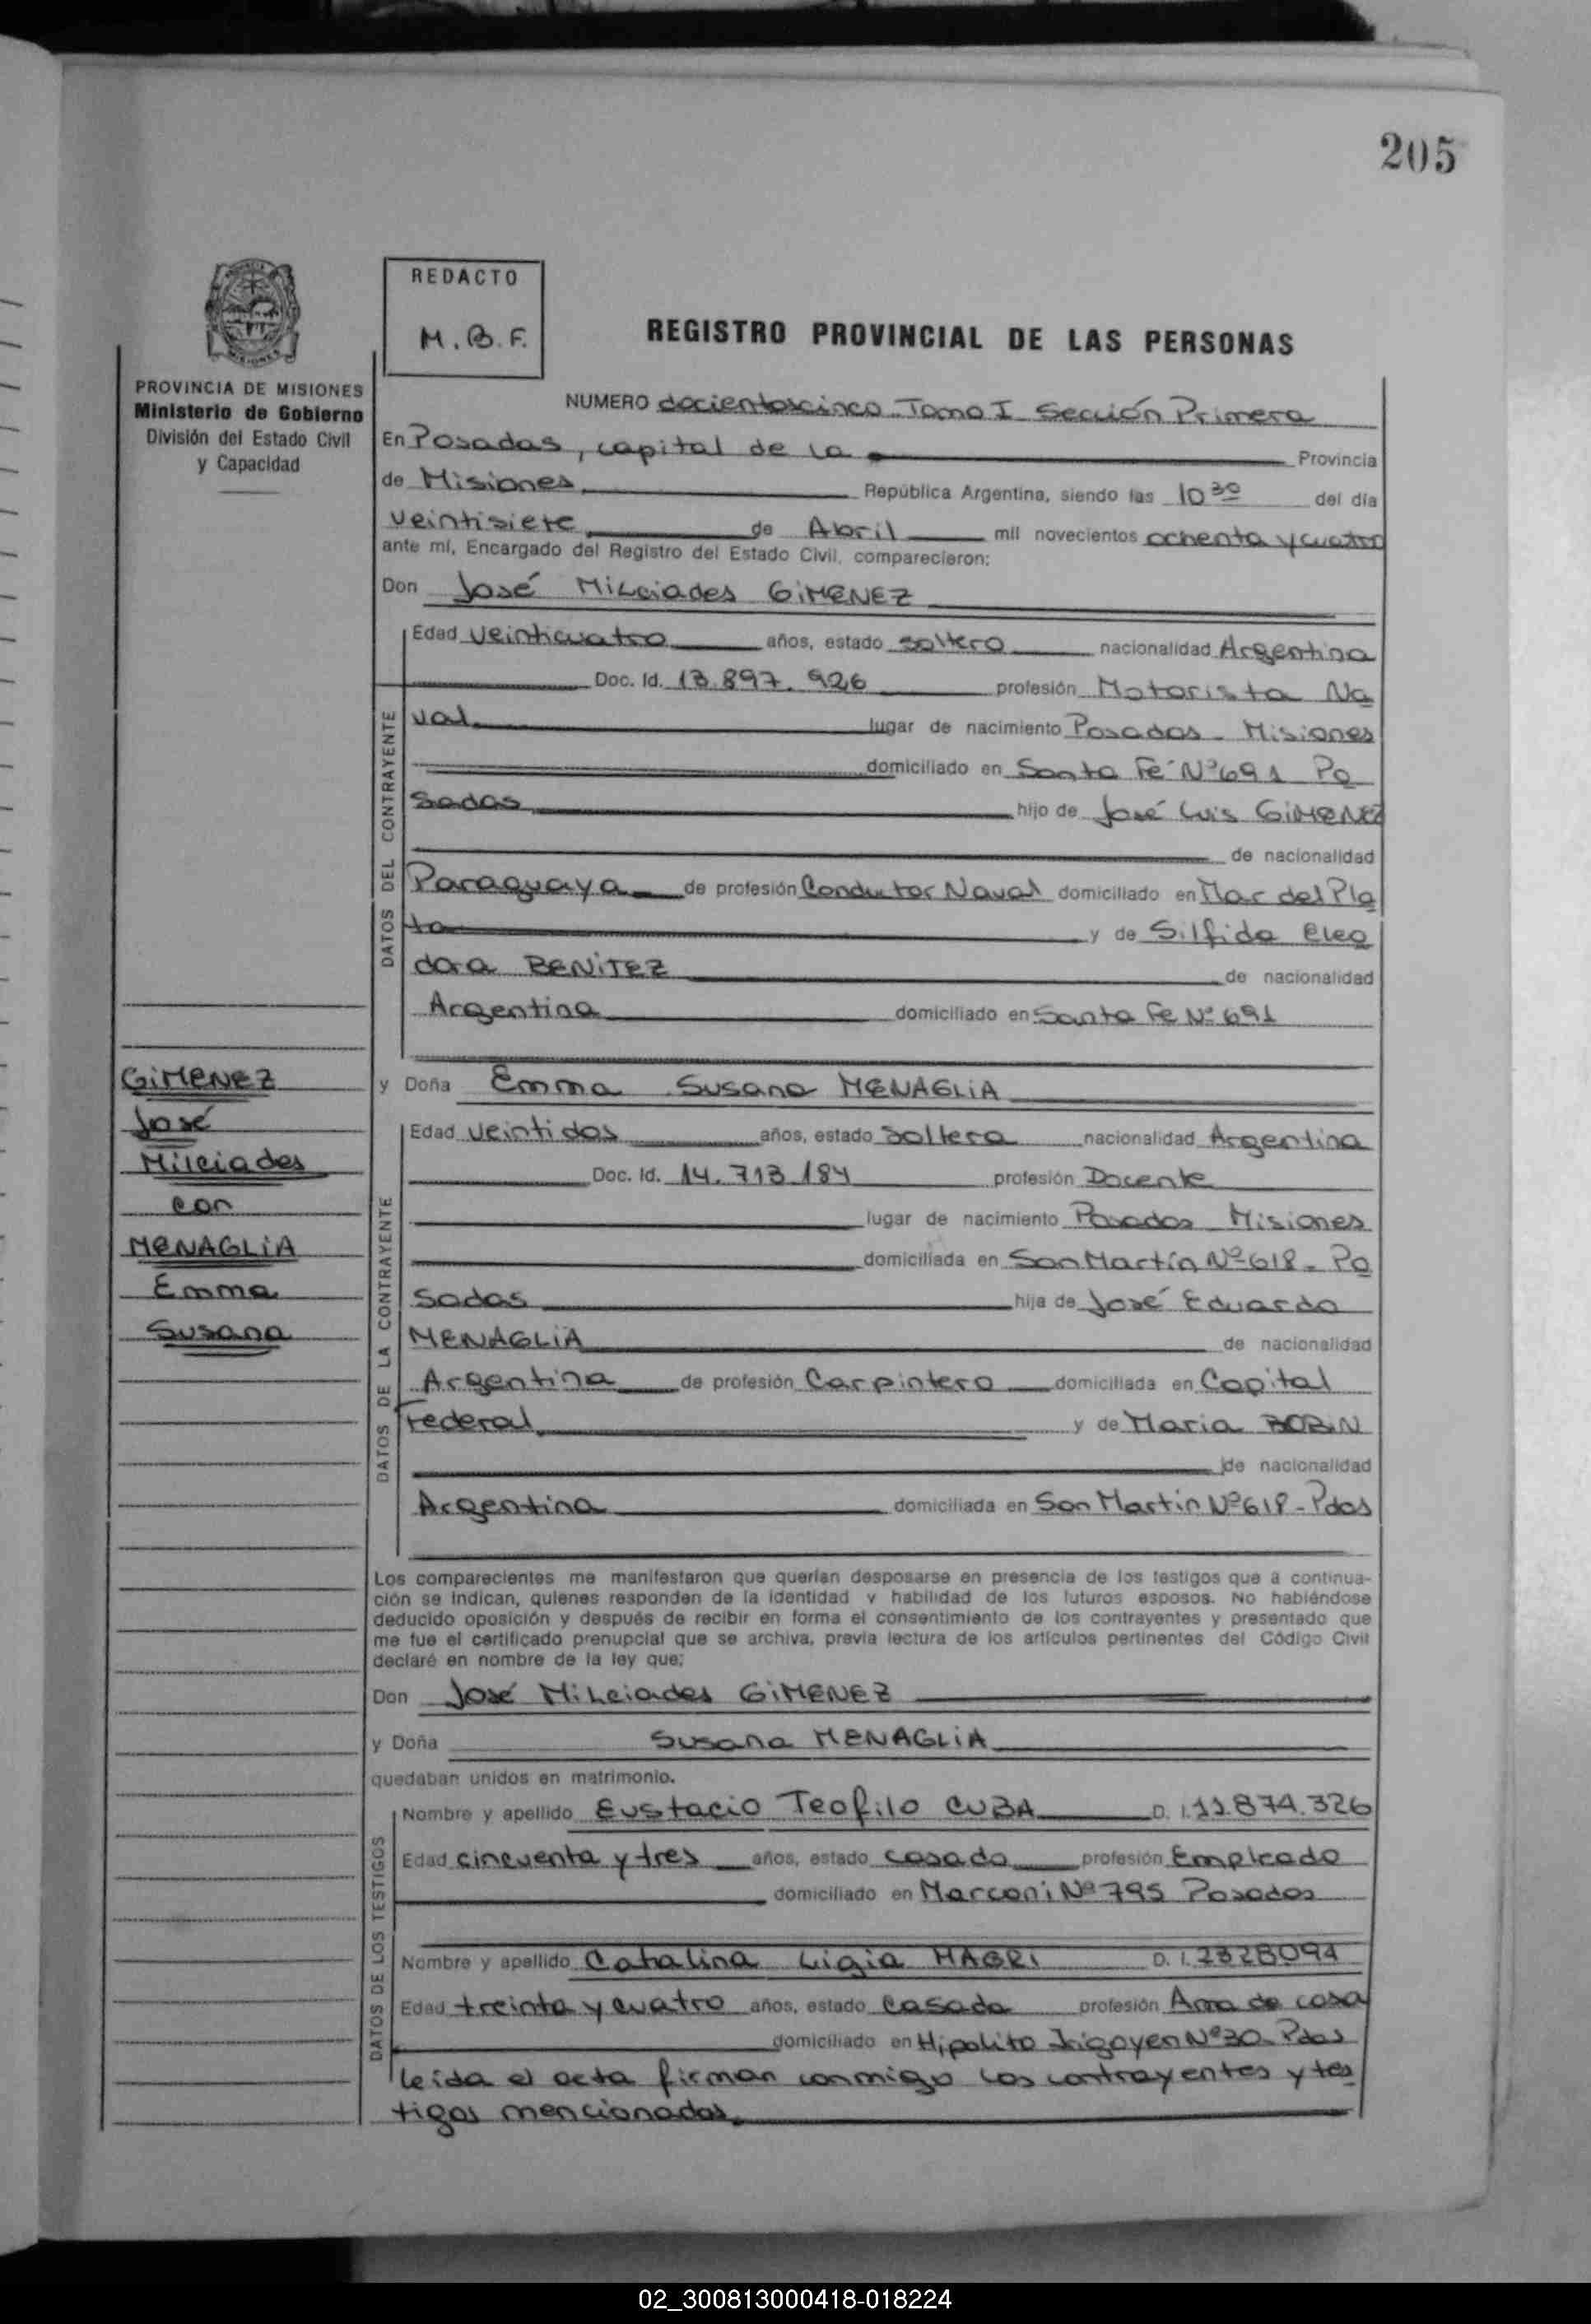 205
REDACTO
M.B.F.
REGISTRO PROVINCIAL DE LAS PERSONAS
PROVINCIA DE MISIONES
Ministerio de Gobierno
División del Estado Civil
y Capacidad
NUMERO docientoscinco Tomo I Sección Primera
En Posadas, capital de la Provincia
de Misiones República Argentina, siendo las 10 30 del día
veintisiete de Abril mil novecientos ochenta y cuatro
ante mí, Encargado del Registro del Estado Civil, comparecieron:
Don José Milciades GIMENEZ
Edad veinticuatro años, estado soltero nacionalidad Argentina
Doc. Id. 13.897.926 profesión Motorista Na
val lugar de nacimiento Posadas - Misiones
domiciliado en Santa Fé Nº 691 Po
sadas hijo de José Luis GIMENEZ
de nacionalidad
Paraguaya de profesión Conductor Naval domiciliado en Mar del Pla
ta y de Silfida Cleo
dora BENITEZ de nacionalidad
Argentina domiciliado en Santa Fe Nº 691
DATOS DEL CONTRAYENTE
GIMENEZ
José
Milciades
con
MENAGLIA
Emma
Susana
y Doña Emma Susana MENAGLIA
Edad veintidos años, estado soltera nacionalidad Argentina
Doc. Id. 14.713.184 profesión Docente
lugar de nacimiento Posadas Misiones
domiciliada en San Martín Nº 618 - Po
sadas hija de José Eduardo
MENAGLIA de nacionalidad
Argentina de profesión Carpintero domiciliada en Capital
Federal y de Maria BOBIN
de nacionalidad
Argentina domiciliada en San Martin Nº 618 - Pdas
DATOS DE LA CONTRAYENTE
Los comparecientes me manifestaron que querían desposarse en presencia de los testigos que a continua-
ción se indican, quienes responden de la identidad y habilidad de los futuros esposos. No habiéndose
deducido oposición y después de recibir en forma el consentimiento de los contrayentes y presentado que
me fue el certificado prenupcial que se archiva, previa lectura de los artículos pertinentes del Código Civil
declaré en nombre de la ley que;
Don José Milciades GIMENEZ
y Doña Susana MENAGLIA
quedaban unidos en matrimonio.
Nombre y apellido Eustacio Teofilo CUBA D. I. 11.874.326
Edad cincuenta y tres años, estado casado profesión Empleado
domiciliado en Marconi Nº 795 Posadas
Nombre y apellido Catalina Ligia MAGRI D. I. 2328094
Edad treinta y cuatro años, estado casada profesión Ama de casa
domiciliado en Hipolito Irigoyen Nº 30 - Pdas
DATOS DE LOS TESTIGOS
leida el acta firman conmigo los contrayentes y tes
tigos mencionados.
02_300813000418-018224